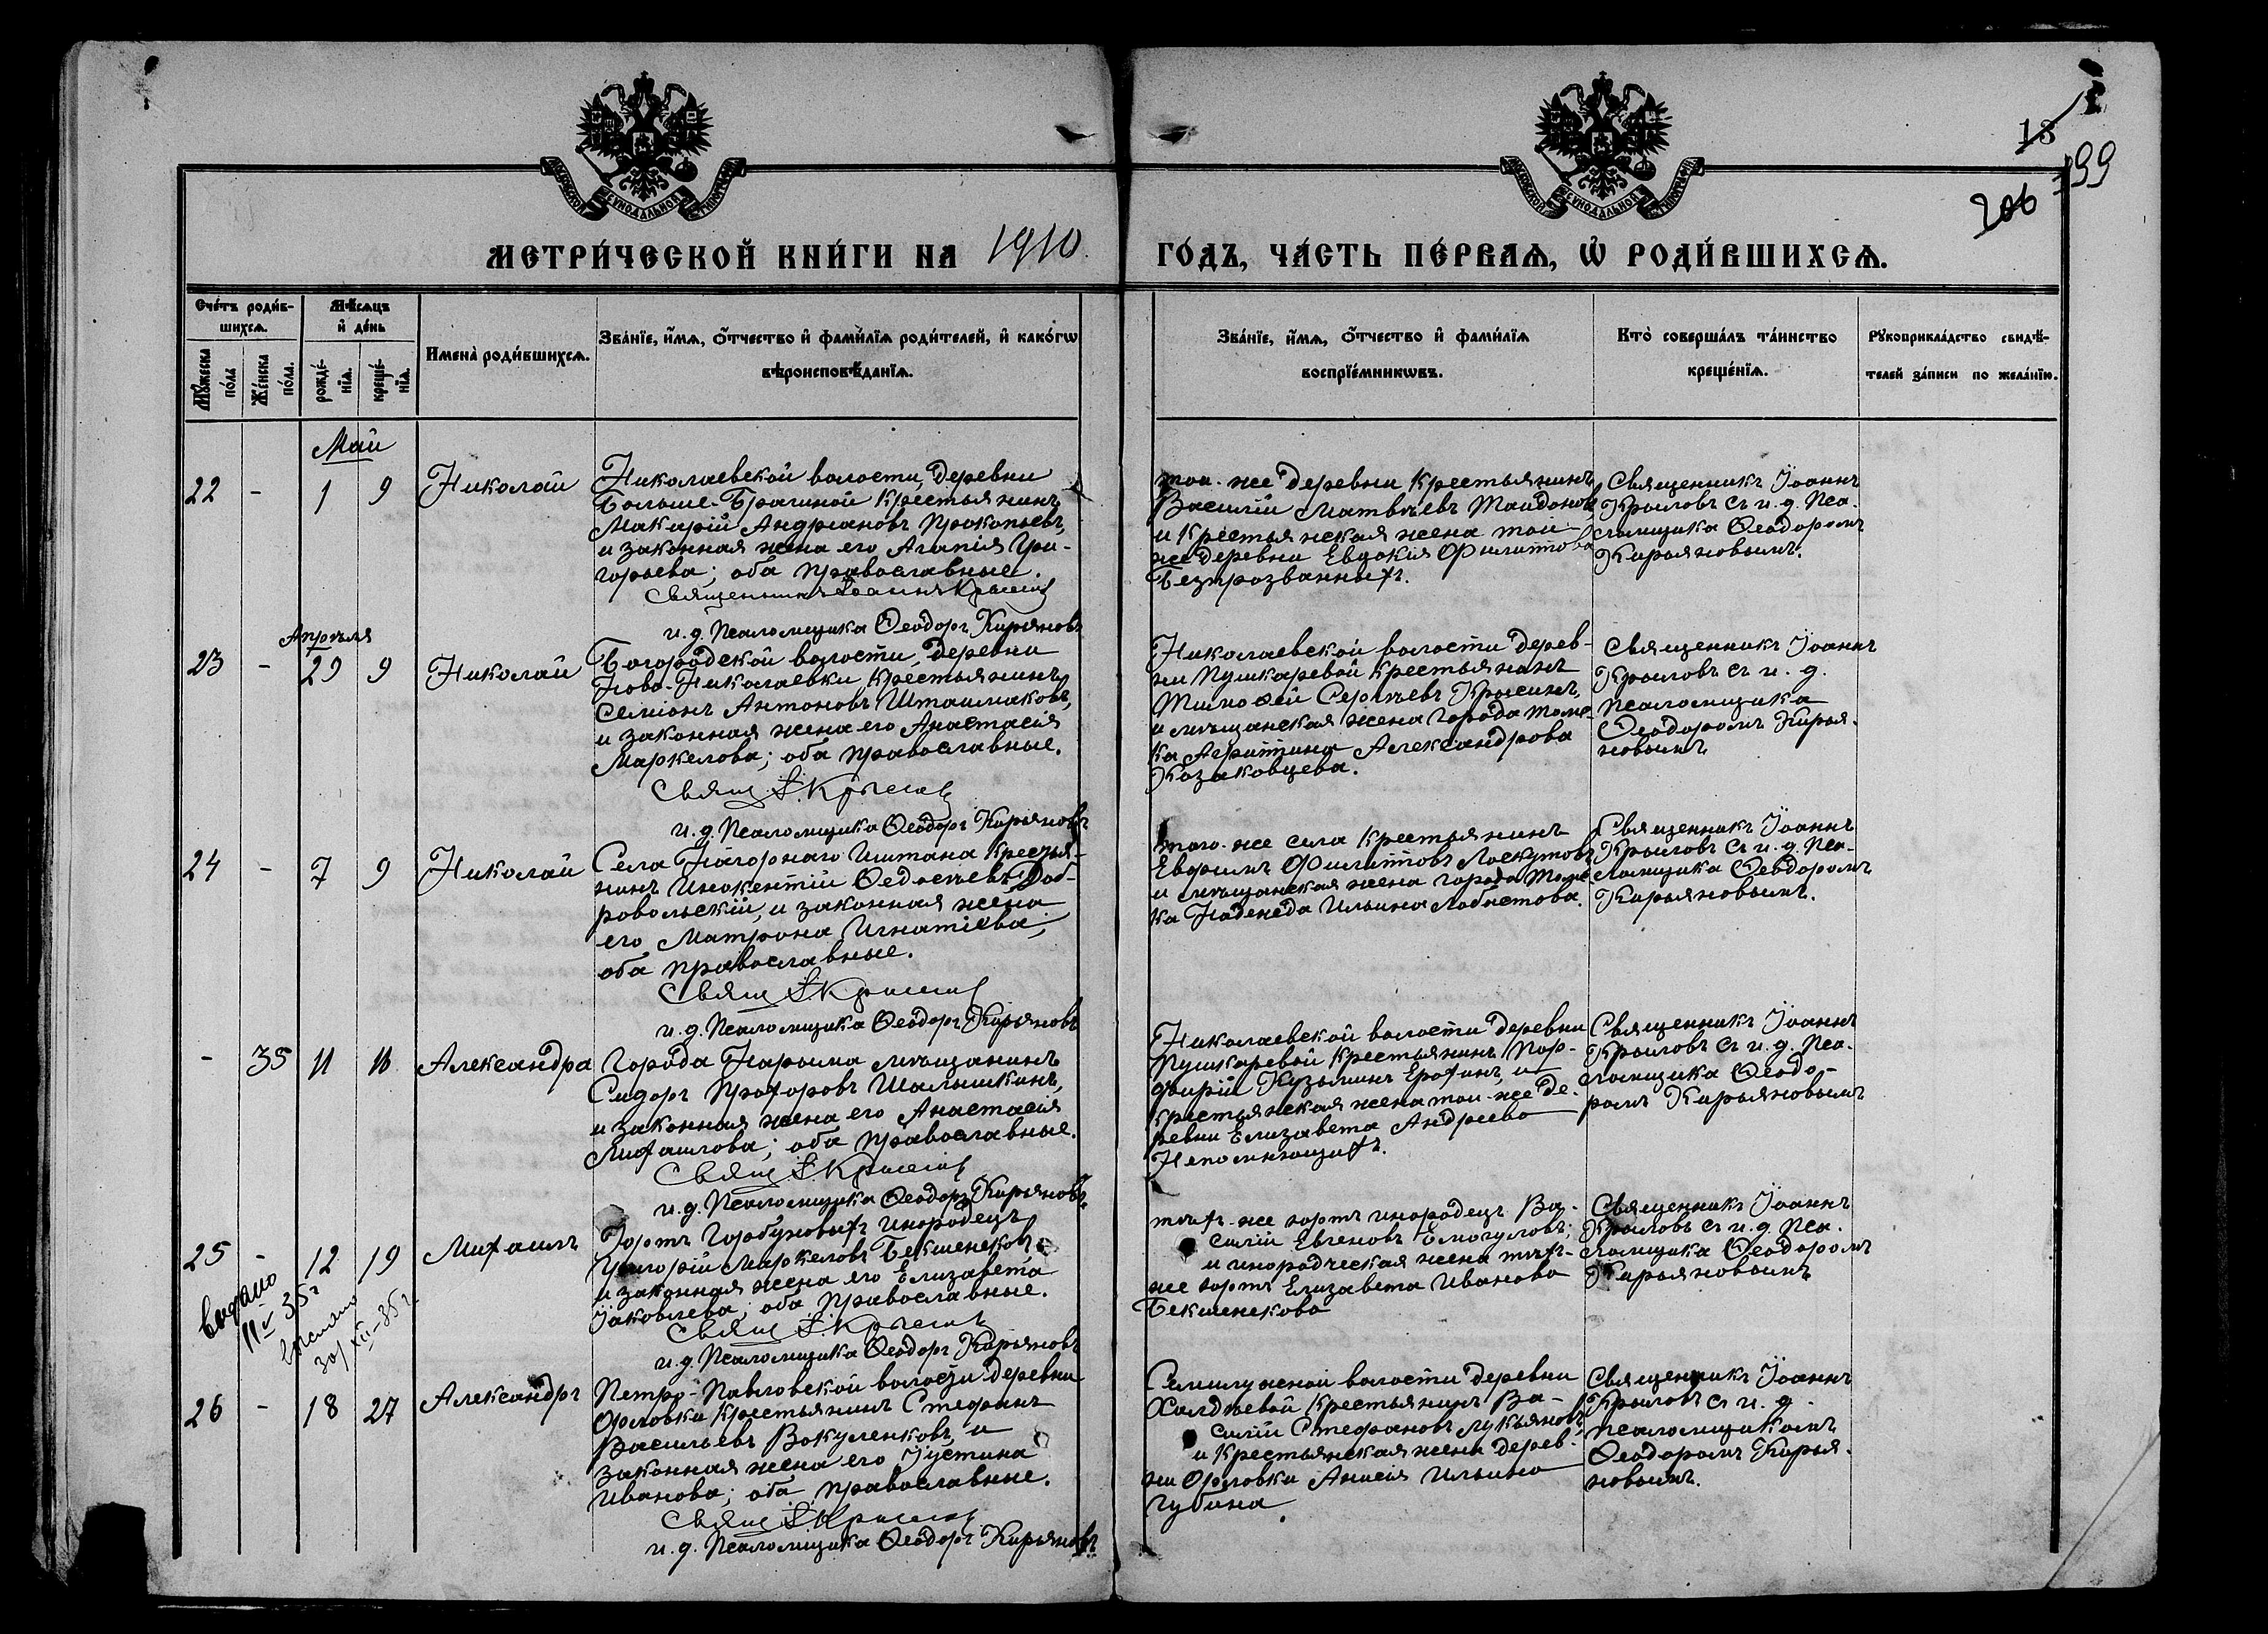 МЕТРИ́ЧЕСКОЙ КНИ́ГИ НА 1910.
ГО́ДЪ, ЧА́СТЬ ПЕ́РВАѦ, Ѽ РОДИ́ВШИХСѦ.
18
206
199
Сче́тъ роди́в-
шихсѧ.
Мꙋ́жеска по́ла
Же́нска по́ла.
Мѣ́сѧцъ
и҆ де́нь
рожде́-
нїѧ.
креще́-
нїѧ.
И҆мена̀ роди́вшихсѧ.
Зва́нїе, и҆́мѧ, ѻ҆́тчество и҆ фами́лїѧ роди́телей, и҆ како́гѡ
вѣроисповѣ́данїѧ.
Зва́нїе, и҆́мѧ, ѻ҆́тчество и҆ фами́лїѧ
воспрїе́мникѡвъ.
Кто̀ соверша́лъ та́инство
креще́нїѧ.
Рꙋкоприкла́дство свидѣ́-
телей за́писи по жела́нїю.
Май
22 - 1 9 Николай
Николаевской волости, деревни
Больше-Брагиной крестьянинъ
Макарій Андріановъ Прокопьевъ,
и законная жена его Агапія Гри-
горьева; оба православные.
Священникъ Іоаннъ Крыловъ
и. д. Псаломщика Ѳеодоръ Кирьяновъ
той-же деревни крестьянинъ
Василій Матвѣевъ Майдоновъ
и крестьянская жена той-
же деревни Евдокія Филиппова
Безпрозванныхъ.
Священникъ Іоаннъ
Крыловъ съ и. д. Пса-
ломщика Ѳеодоромъ
Кирьяновымъ.
Апрѣля
23 - 29 9 Николай
Богородской волости, деревни
Ново-Николаевки крестьянинъ
Семіонъ Антоновъ Шташмаковъ,
и законная жена его Анастасія
Маркелова; оба православные.
Свящ. І. Крыловъ
и. д. Псаломщика Ѳеодоръ Кирьяновъ
Николаевской волости дерев-
ни Пушкаревой крестьянинъ
Тимоѳей Сергѣевъ Крысинъ,
и мѣщанская жена города Томс-
ка Агриппина Александрова
Казаковцева.
Священникъ Іоаннъ
Крыловъ съ и. д.
псаломщика
Ѳеодоромъ Кирья-
новымъ
24 - 7 9 Николай
Села Нагорнаго Иштана крестья-
нинъ Инокентій Ѳедосѣевъ Доб-
ровольскій, и законная жена
его Матрона Игнатіева;
оба православные.
Свящ. І. Крыловъ
и. д. Псаломщика Ѳеодоръ Кирьяновъ
того-же села крестьянинъ
Евфимъ Филиповъ Лоскутовъ
и мѣщанская жена города Томс-
ка Надежда Ильина Лобастова.
Священникъ Іоаннъ
Крыловъ съ и. д. Пса-
ломщика Ѳеодоромъ
Кирьяновымъ.
- 35 11 16 Александра
Города Нарыма мѣщанинъ
Сидоръ Прохоровъ Шалышкинъ,
и законная жена его Анастасія
Михаилова; оба православные.
Свящ. І. Крыловъ
и. д. Псаломщика Ѳеодоръ Кирьяновъ.
Николаевской волости деревни
Пушкаревой крестьянинъ Пор-
фирій Кузьминъ Ерохинъ, и
крестьянская жена той-же де-
ревни Елизавета Андреева
Непомнющихъ.
Священникъ Іоаннъ
Крыловъ съ и. д. Пса-
ломщика Ѳеодо-
ромъ Кирьяновымъ
25 - 12 19 Михаилъ
Юртъ Горбуновыхъ инородецъ
Григорій Маркеловъ Бекшенековъ,
и законная жена его Елизавета
Іаковлева; оба православные.
Свящ. І. Крыловъ
и. д. Псаломщика Ѳеодоръ Кирьяновъ
тѣхъ-же юртъ инородецъ Ва-
силій Евгеновъ Емогуловъ;
и инородческая жена тѣхъ-
же юртъ Елизавета Иванова
Бекшенекова
Священникъ Іоаннъ
Крыловъ съ и. д. Пса-
ломщика Ѳеодоромъ
Кирьяновымъ
выдано
35 г
30/XII-35 г.
26 - 18 27 Александръ
Петро-Павловской волости деревни
Орловки крестьянинъ Стефанъ
Васильевъ Вакуленковъ, и
законная жена его Іустина
Иванова; оба православные.
Свящ. І. Крыловъ
и. д. Псаломщика Ѳеодоръ Кирьяновъ
Семилужной волости деревни
Халдѣевой крестьянинъ Ва-
силій Стефановъ Лукьяновъ
и крестьянская жена дерев-
ни Орловки Анисія Ильина
Губина.
Священникъ Іоаннъ
Крыловъ съ и. д.
псаломщикомъ
Ѳеодоромъ Кирья-
новымъ.